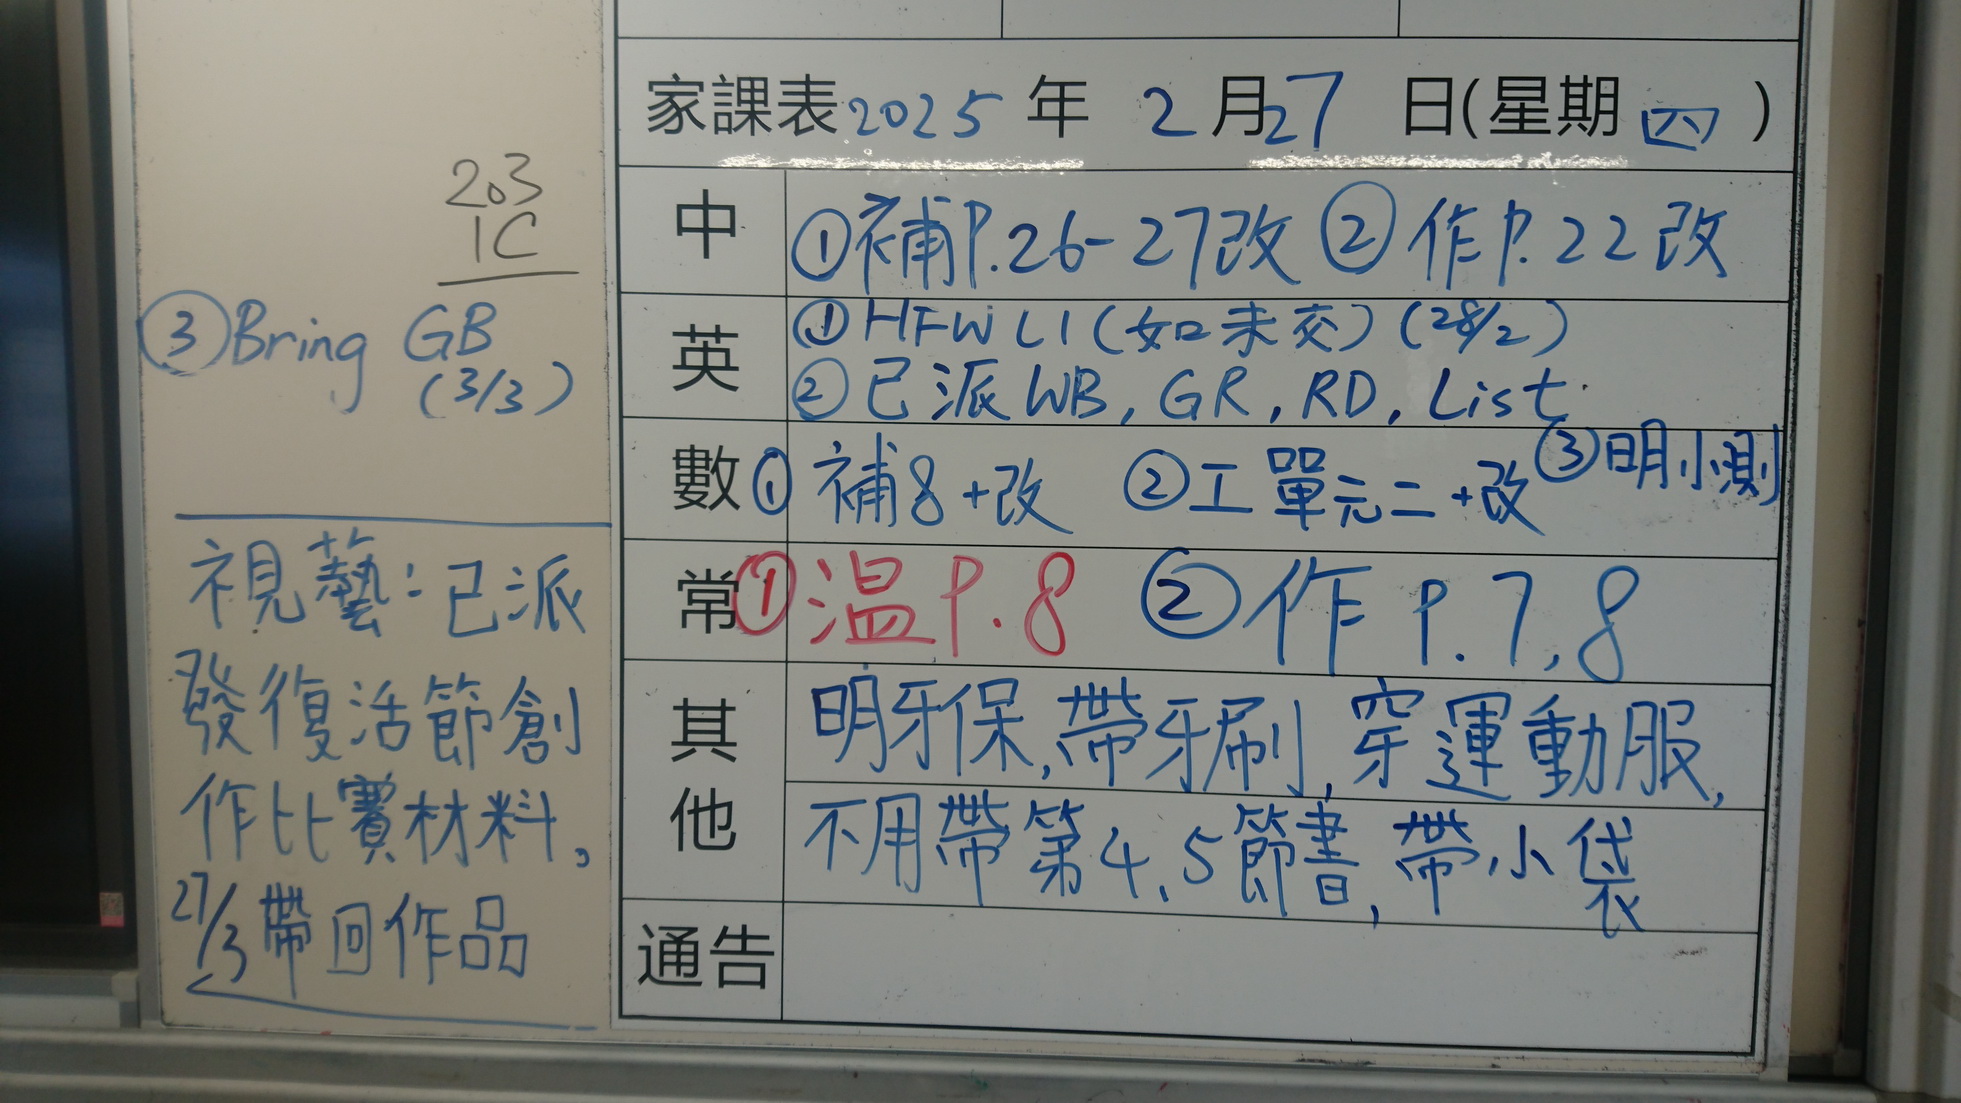 203
1C
③Bring GB
(3/3)
視藝：已派
發復活節創
作比賽材料。
27/3帶回作品
家課表2025年 2月27日(星期四)
中 ①補P.26-27改 ②作P.22改
英 ①HFW L1(如未交)(28/2)
②已派WB, GR, RD, List.
數 ①補8+改 ②工單元二+改 ③明小測
常 ①温P.8 ②作P.7,8
其他 明牙保,帶牙刷,穿運動服,
不用帶第4,5節書,帶小袋
通告